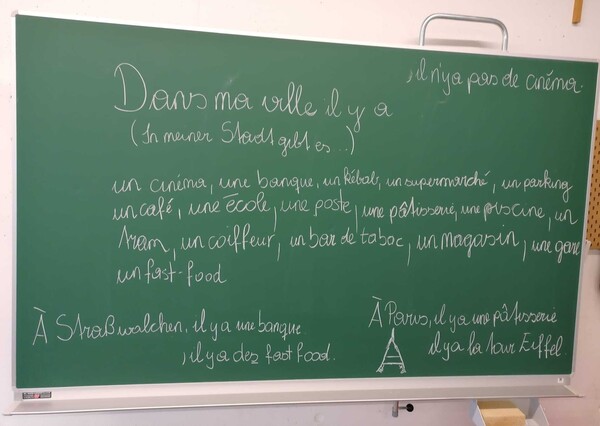 , il n'y a pas de cinéma.
Dans ma ville il y a
(In meiner Stadt gibt es...)
un cinéma, une banque, un kébab, un supermarché, un parking
un café, une école, une poste, une pâtisserie, une piscine, un
tram, un coiffeur, un bar de tabac, un magasin, une gare
un fast-food
À Straßwalchen, il y a une banque
, il y a dez fast food.
À Paris, il y a une pâtisserie
il y a la tour Eiffel.